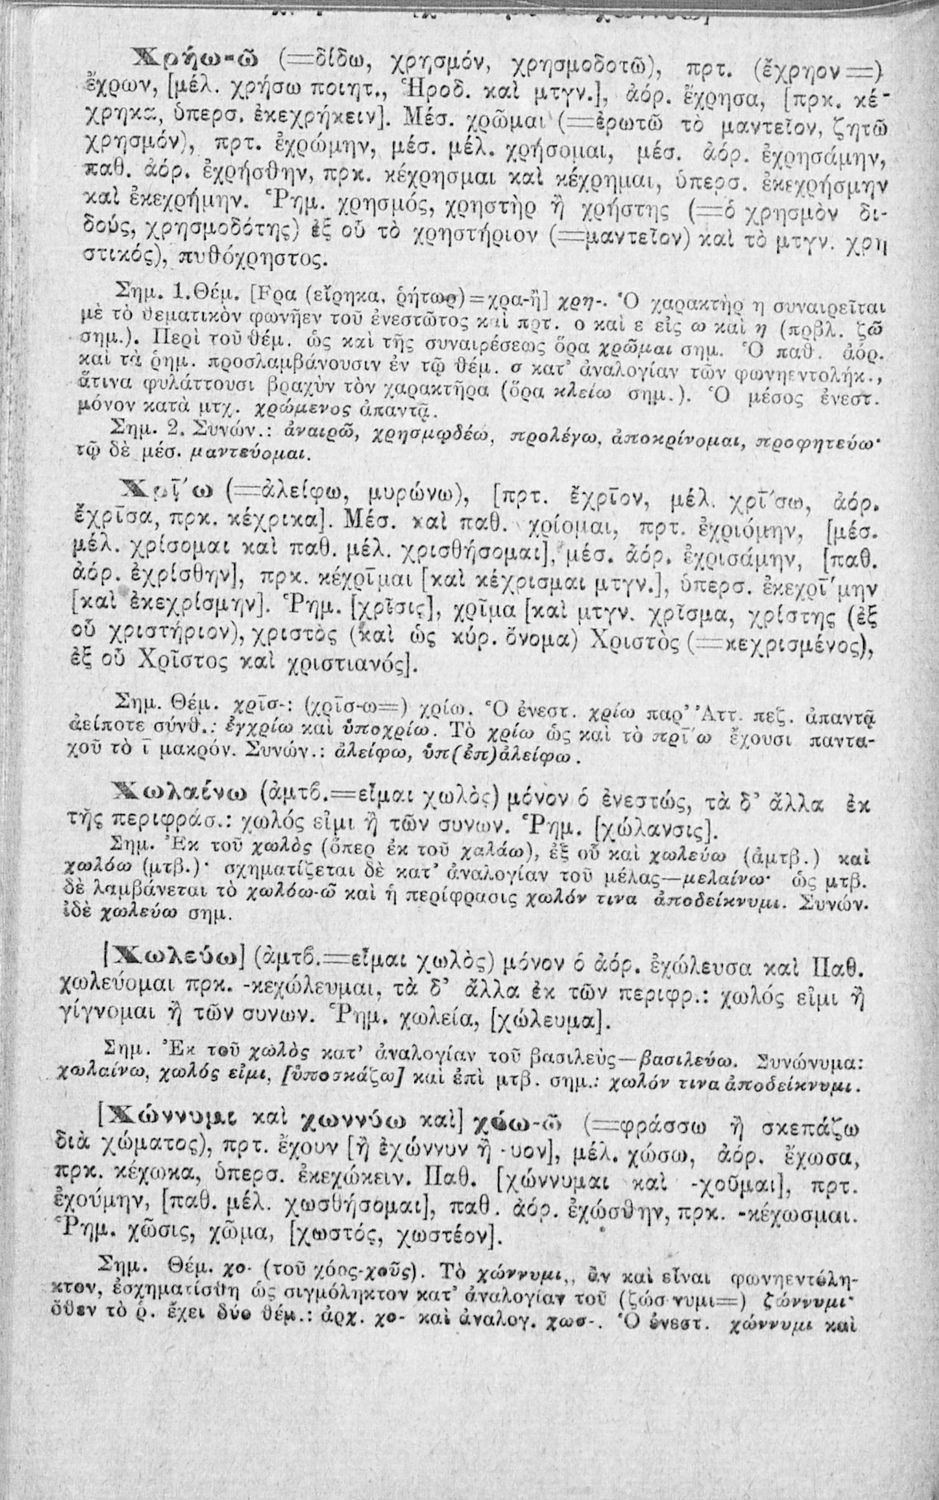 Χρήω-ῶ (=δίδω, χρησμόν, χρησμοδοτῶ), πρτ. (ἔχρηον=)
ἔχρων, [μέλ. χρήσω ποιητ., Ἡροδ. καὶ μτγν.], ἀόρ. ἔχρησα, [πρκ. κέ-
χρηκα, ὑπερσ. ἐκεχρήκειν]. Μέσ. χρῶμαι (=ἐρωτῶ τὸ μαντεῖον, ζητῶ
χρησμόν), πρτ. ἐχρώμην, μέσ. μέλ. χρήσομαι, μέσ. ἀόρ. ἐχρησάμην,
παθ. ἀόρ. ἐχρήσθην, πρκ. κέχρησμαι καὶ κέχρημαι, ὑπερσ. ἐκεχρήσμην
καὶ ἐκεχρήμην. Ῥημ. χρησμός, χρηστὴρ ἢ χρήστης (=ὁ χρησμὸν δι-
δούς, χρησμοδότης) ἐξ οὗ τὸ χρηστήριον (=μαντεῖον) καὶ τὸ μτγν. χρη
στικός), πυθόχρηστος.
Σημ. 1.Θέμ. [Fρα (εἴρηκα, ῥήτωρ)=χρα-ἢ] χρη-. Ὁ χαρακτὴρ η συναιρεῖται
μὲ τὸ θεματικὸν φωνῆεν τοῦ ἐνεστῶτος καὶ πρτ. ο καὶ ε εἰς ω καὶ η (πρβλ. ζῶ
σημ.). Περὶ τοῦ θέμ. ὡς καὶ τῆς συναιρέσεως ὅρα χρῶμαι σημ. Ὁ παθ. ἀόρ.
καὶ τὰ ῥημ. προσλαμβάνουσιν ἐν τῷ θέμ. σ κατ' ἀναλογίαν τῶν φωνηεντολήκ.,
ἅτινα φυλάττουσι βραχὺν τὸν χαρακτῆρα (ὅρα κλείω σημ.). Ὁ μέσος ἐνεστ.
μόνον κατὰ μτχ. χρώμενος ἀπαντᾷ.
Σημ. 2. Συνών.: ἀναιρῶ, χρησμῳδέω, προλέγω, ἀποκρίνομαι, προφητεύω·
τῷ δὲ μέσ. μαντεύομαι.
Χρῑ́ω (=ἀλείφω, μυρώνω), [πρτ. ἔχρῑον, μέλ. χρῑ́σω, ἀόρ.
ἔχρῑσα, πρκ. κέχρικα]. Μέσ. καὶ παθ. χρίομαι, πρτ. ἐχριόμην, [μέσ.
μέλ. χρίσομαι καὶ παθ. μέλ. χρισθήσομαι], μέσ. ἀόρ. ἐχρισάμην, [παθ.
ἀόρ. ἐχρίσθην], πρκ. κέχρῑμαι [καὶ κέχρισμαι μτγν.], ὑπερσ. ἐκεχρῑ́μην
[καὶ ἐκεχρίσμην]. Ῥημ. [χρῖσις], χρῖμα [καὶ μτγν. χρῖσμα, χρίστης (ἐξ
οὗ χριστήριον), χριστὸς (καὶ ὡς κύρ. ὄνομα) Χριστὸς (=κεχρισμένος),
ἐξ οὗ Χρῖστος καὶ χριστιανός].
Σημ. Θέμ. χρῑσ-: (χρῑσ-ω=) χρίω. Ὁ ἐνεστ. χρίω παρ' Ἀττ. πεζ. ἀπαντᾷ
ἀείποτε σύνθ.: ἐγχρίω καὶ ὑποχρίω. Τὸ χρίω ὡς καὶ τὸ πρῑ́ω ἔχουσι παντα-
χοῦ τὸ ῑ μακρόν. Συνών.: ἀλείφω, ὑπ(ἐπ)αλείφω.
Χωλαίνω (ἀμτβ.=εἶμαι χωλὸς) μόνον ὁ ἐνεστώς, τὰ δ' ἄλλα ἐκ
τῆς περιφράσ.: χωλός εἰμι ἢ τῶν συνων. Ῥημ. [χώλανσις].
Σημ. Ἐκ τοῦ χωλὸς (ὅπερ ἐκ τοῦ χαλάω), ἐξ οὗ καὶ χωλεύω (ἀμτβ.) καὶ
χωλόω (μτβ.)· σχηματίζεται δὲ κατ' ἀναλογίαν τοῦ μέλας—μελαίνω· ὡς μτβ.
δὲ λαμβάνεται τὸ χωλόω-ῶ καὶ ἡ περίφρασις χωλόν τινα ἀποδείκνυμι. Συνών.
ἰδὲ χωλεύω σημ.
[Χωλεύω] (ἀμτβ.=εἶμαι χωλὸς) μόνον ὁ ἀόρ. ἐχώλευσα καὶ Παθ.
χωλεύομαι πρκ. -κεχώλευμαι, τὰ δ' ἄλλα ἐκ τῶν περιφρ.: χωλός εἰμι ἢ
γίγνομαι ἢ τῶν συνων. Ῥημ. χωλεία, [χώλευμα].
Σημ. Ἐκ τοῦ χωλὸς κατ' ἀναλογίαν τοῦ βασιλεὺς—βασιλεύω. Συνώνυμα:
χωλαίνω, χωλός εἰμι, [ὑποσκάζω] καὶ ἐπὶ μτβ. σημ.: χωλόν τινα ἀποδείκνυμι.
[Χώννυμι καὶ χωννύω καὶ] χόω-ῶ (=φράσσω ἢ σκεπάζω
διὰ χώματος), πρτ. ἔχουν [ἢ ἐχώννυν ἢ -υον], μέλ. χώσω, ἀόρ. ἔχωσα,
πρκ. κέχωκα, ὑπερσ. ἐκεχώκειν. Παθ. [χώννυμαι καὶ -χοῦμαι], πρτ.
ἐχούμην, [παθ. μέλ. χωσθήσομαι], παθ. ἀόρ. ἐχώσθην, πρκ. -κέχωσμαι.
Ῥημ. χῶσις, χῶμα, [χωστός, χωστέον].
Σημ. Θέμ. χο- (τοῦ χόος-χοῦς). Τὸ χώννυμι, ἂν καὶ εἶναι φωνηεντόλη-
κτον, ἐσχηματίσθη ὡς σιγμόληκτον κατ' ἀναλογίαν τοῦ (ζώσ-νυμι=) ζώννυμι·
ὅθεν τὸ ῥ. ἔχει δύο θέμ.: ἀρχ. χο- καὶ ἀναλογ. χωσ-. Ὁ ἐνεστ. χώννυμι καὶ